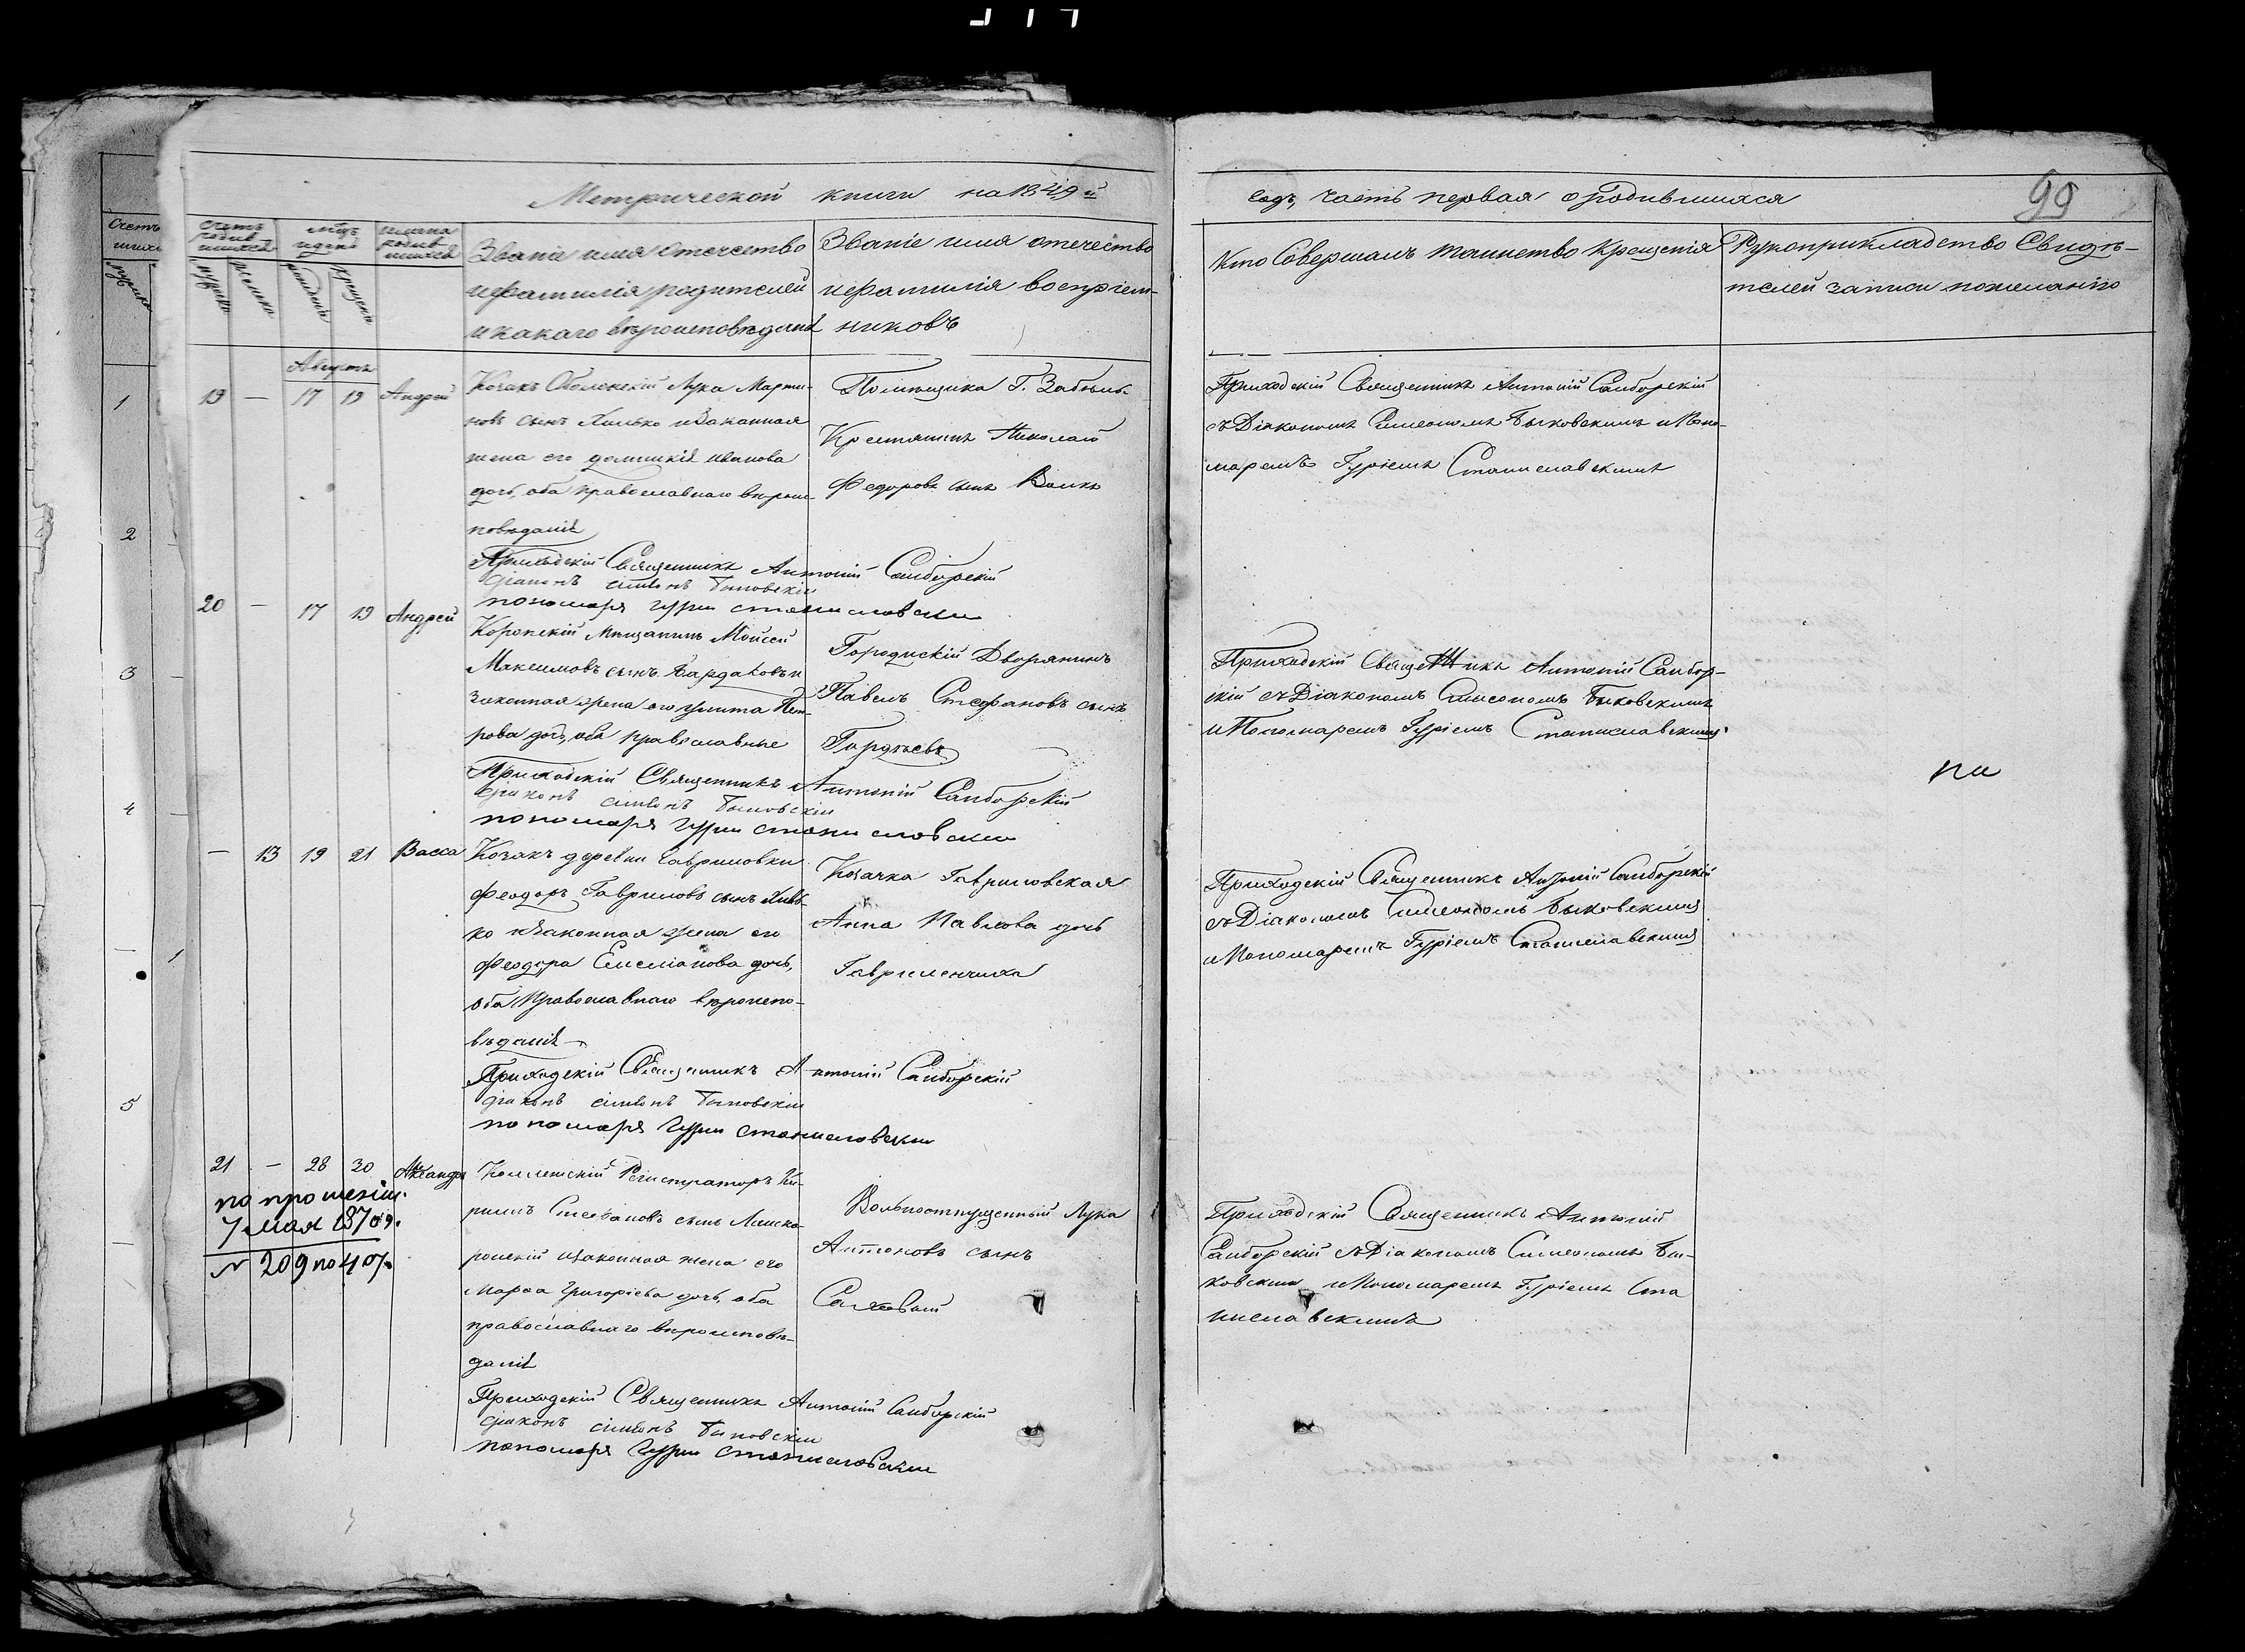 Метрической книги на 1849й
годъ, часть первая о родившихся
99
Счетъ родившихся
мѣсяцъ и день
имена родившихся
Званіе имя отечество
и фамилія родителей
и какаго вѣроисповѣданія
Званіе имя отечество
и фамилія воспріем-
никовъ
Кто Совершалъ таинство Крещенія
Рукоприкладство Свидѣ-
телей записи по желанію
мужеска
женска
рожденія
крещенія
Августъ
19 — 17 19 Андрей
Козакъ Лука Марти-
новъ сынъ и законная
жена его Иванова
дочь, оба православнаго вѣроис-
повѣданія
Помѣщика Г.
Крестьянинъ Николай
Федоровъ сынъ
Приходскій Священникъ Антоній Самборскій
съ Діакономъ Симеономъ Быковскимъ и Поно-
маремъ Гуріемъ Станиславскимъ
Приходскій Священникъ Антоній Самборскій
діаконъ Быковскій
пономарь Гурій Станиславскій
20 — 17 19 Андрей
Коропскій мѣщанинъ Моисей
Максимовъ сынъ Бардаковъ и
законная жена его Улита Пет-
рова дочь, оба православные
Дворянинъ
Павелъ Стефановъ сынъ
Гордѣевъ
Приходскій Священникъ Антоній Самбор-
скій съ Діакономъ Симеономъ Быковскимъ
и Пономаремъ Гуріемъ Станиславскимъ
Приходскій Священникъ Антоній Самборскій
діаконъ Быковскій
пономарь Гурій Станиславскій
— 13 19 21 Васса
Козакъ деревни Гавриловки
Феодоръ Гавриловъ сынъ
ко и законная жена его
Феодора Емеліанова дочь,
оба Православнаго вѣроиспо-
вѣданія
Козачка Гавриловская
Анна Павлова дочь
Гавриленчиха
Приходскій Священникъ Антоній Самборскій
съ Діакономъ Симеономъ Быковскимъ
и Пономаремъ Гуріемъ Станиславскимъ
Приходскій Священникъ Антоній Самборскій
діаконъ Быковскій
пономарь Гурій Станиславскій
21 — 28 30
по прошенію
7 мая 1870 г.
№ 209 по
Коллежскій Регистраторъ Ки-
рилъ Стефановъ сынъ
ронскій и законная жена его
Марѳа Григоріева дочь, оба
православнаго вѣроисповѣ-
данія
Вольноотпущенный Лука
Антоновъ сынъ
Приходскій Священникъ Антоній
Самборскій съ Діакономъ Симеономъ Бы-
ковскимъ и Пономаремъ Гуріемъ Ста
ниславскимъ
Приходскій Священникъ Антоній Самборскій
діаконъ Быковскій
пономарь Гурій Станиславскій
1
2
3
4
5